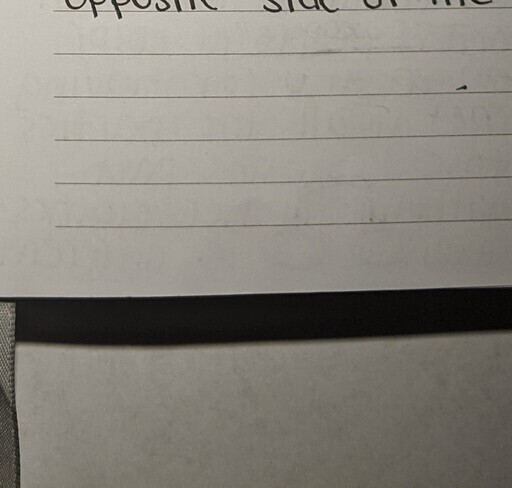 opposite side of the